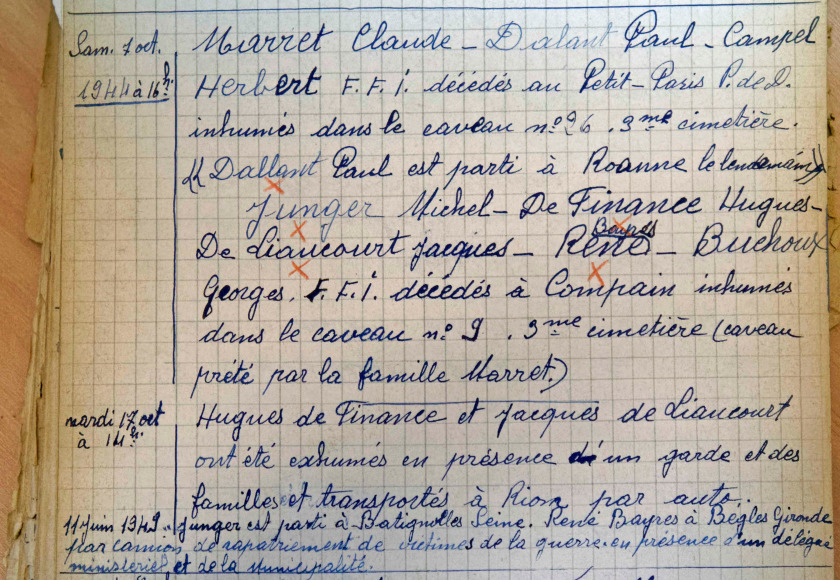 Sam. 7 oct.
1944 à 16h.
Marret Claude – Dalant Paul – Campel
Herbert F.F.I. décédés au Petit-Paris P. de D.
inhumés dans le caveau n° 26. 3me cimetière.
(( Dallant Paul est parti à Roanne le lendemain ))
Junger Michel – De Finance Hugues –
Bayres
De Liancourt Jacques – René – Buchoux
Georges. F.F.I. décédés à Compain inhumés
dans le caveau n° 9. 3me cimetière (caveau
prêté par la famille Marret.)
mardi 17 oct
à 14h.
Hugues de Finance et Jacques de Liancourt
ont été exhumés en présence d'un garde et des
familles et transportés à Riom par auto.
11 Juin 1949 – Junger est parti à Batignolles Seine. René Bayres à Bègles Gironde
par camion de rapatriement de victimes de la guerre. en présence d'un délégué
ministériel et de la municipalité.